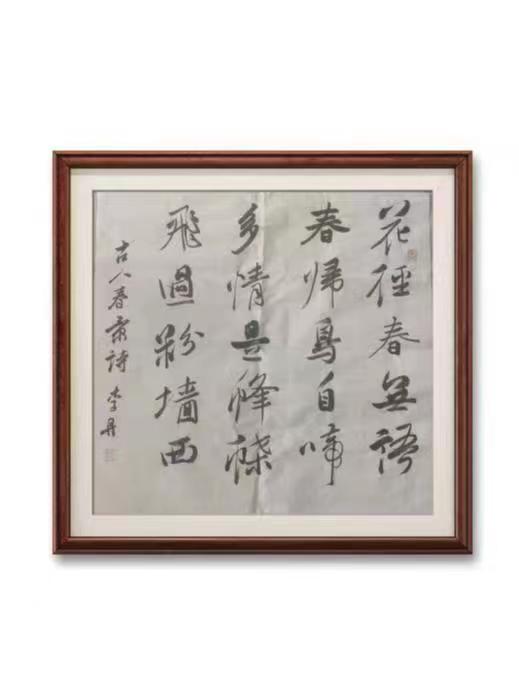 花徑春無語
春歸鳥自啼
多情是蜂蝶
飛過粉墙西
古人春景詩 李丹